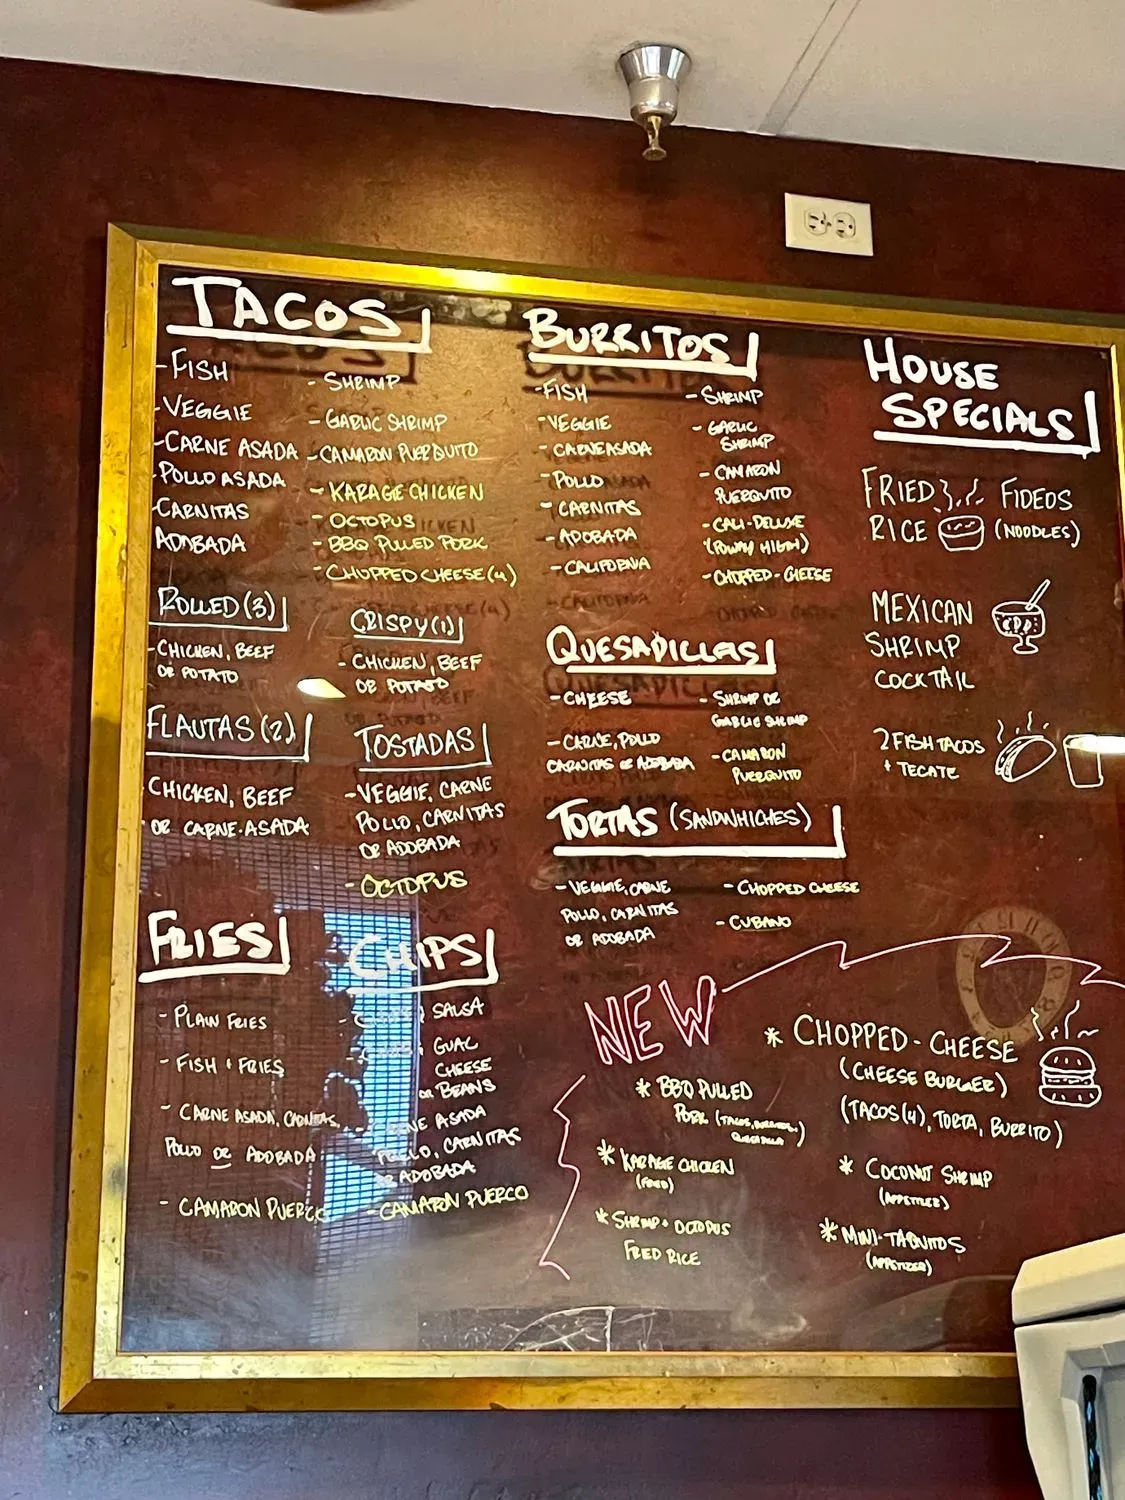 TACOS
- FISH
- VEGGIE
- CARNE ASADA
- POLLO ASADA
- CARNITAS
ADOBADA
- SHRIMP
- GARLIC SHRIMP
- CAMARON PUERQUITO
- KARAGE CHICKEN
- OCTOPUS
- BBQ PULLED PORK
- CHOPPED CHEESE (4)
ROLLED (3)
- CHICKEN, BEEF
OR POTATO
CRISPY (1)
- CHICKEN, BEEF
OR POTATO
FLAUTAS (2)
CHICKEN, BEEF
OR CARNE ASADA
TOSTADAS
- VEGGIE, CARNE
POLLO, CARNITAS
OR ADOBADA
- OCTOPUS
FRIES
- PLAIN FRIES
- FISH + FRIES
- CARNE ASADA, CARNITAS,
POLLO OR ADOBADA
- CAMARON PUERCO
CHIPS
SALSA
GUAC
CHEESE
OR BEANS
ASADA
POLLO, CARNITAS
OR ADOBADA
- CAMARON PUERCO
BURRITOS
- FISH
- VEGGIE
- CARNE ASADA
- POLLO
- CARNITAS
- ADOBADA
- CALIFORNIA
- SHRIMP
- GARLIC
SHRIMP
- CAMARON
PUERQUITO
- CALI-DELUXE
(POWAY HIGH)
- CHOPPED-CHEESE
QUESADILLAS
- CHEESE
- CARNE, POLLO
CARNITAS OR ADOBADA
- SHRIMP OR
GARLIC SHRIMP
- CAMARON
PUERQUITO
TORTAS (SANDWHICHES)
- VEGGIE, CARNE
POLLO, CARNITAS
OR ADOBADA
- CHOPPED CHEESE
- CUBANO
HOUSE
SPECIALS
FRIED
RICE
FIDEOS
(NOODLES)
MEXICAN
SHRIMP
COCKTAIL
2 FISH TACOS
+ TECATE
NEW
* BBQ PULLED
PORK (TACOS, BURRITOS,
QUESADILLA)
* KARAGE CHICKEN
* SHRIMP + OCTOPUS
FRIED RICE
* CHOPPED-CHEESE
(CHEESE BURGER)
(TACOS (4), TORTA, BURRITO)
* COCONUT SHRIMP
(APPETIZER)
* MINI-TAQUITOS
(APPETIZER)